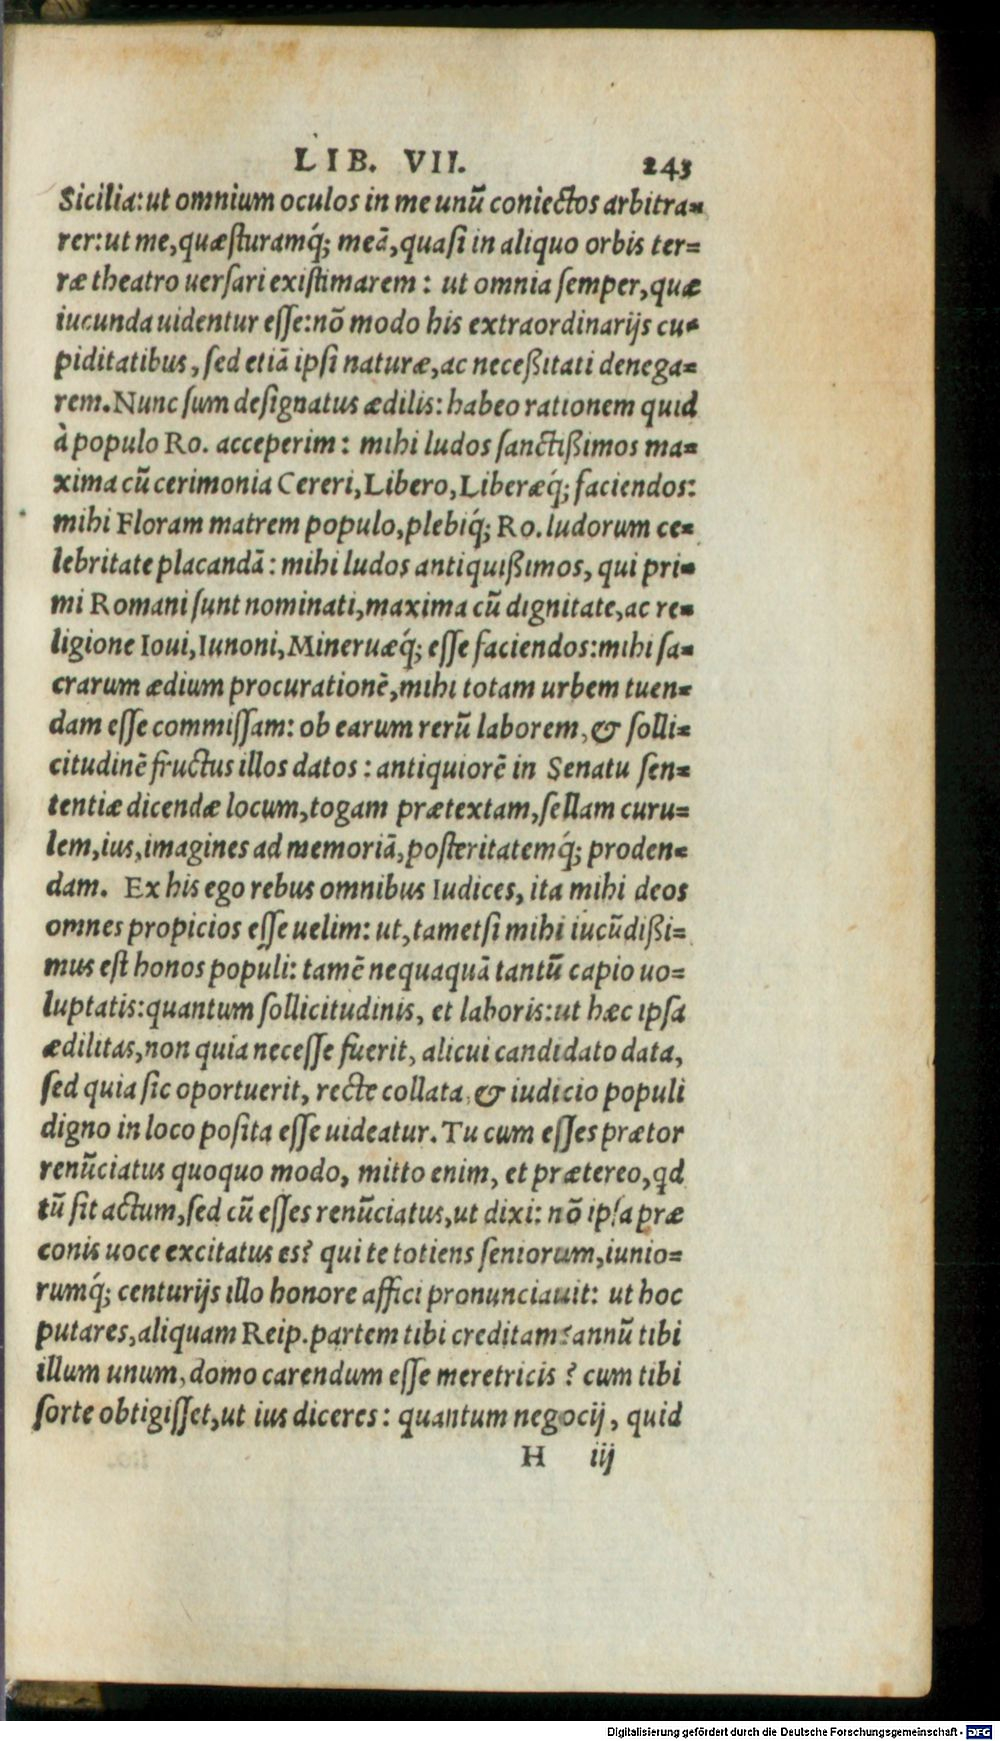 LIB. VII. 243
Sicilia: ut omnium oculos in me unũ coniectos arbitra=
rer: ut me, quæsturamq́; meã, quasi in aliquo orbis ter=
ræ theatro uersari existimarem: ut omnia semper, quæ
iucunda uidentur esse: nõ modo his extraordinarijs cu=
piditatibus, sed etiã ipsi naturæ, ac neceßitati denega=
rem. Nunc sum designatus ædilis: habeo rationem quid
à populo Ro. acceperim: mihi ludos sanctißimos ma=
xima cũ cerimonia Cereri, Libero, Liberæq́; faciendos:
mihi Floram matrem populo, plebiq́; Ro. ludorum ce=
lebritate placandã: mihi ludos antiquißimos, qui pri=
mi Romani sunt nominati, maxima cũ dignitate, ac re=
ligione Ioui, Iunoni, Mineruæq́; esse faciendos: mihi sa=
crarum ædium procurationẽ, mihi totam urbem tuen=
dam esse commissam: ob earum rerũ laborem, & solli=
citudinẽ fructus illos datos: antiquiorẽ in Senatu sen=
tentiæ dicendæ locum, togam prætextam, sellam curu=
lem, ius, imagines ad memoriã, posteritatemq́; proden=
dam. Ex his ego rebus omnibus Iudices, ita mihi deos
omnes propicios esse uelim: ut, tametsi mihi iucũdißi=
mus est honos populi: tamẽ nequaquã tantũ capio uo=
luptatis: quantum sollicitudinis, et laboris: ut hæc ipsa
ædilitas, non quia necesse fuerit, alicui candidato data,
sed quia sic oportuerit, recte collata, & iudicio populi
digno in loco posita esse uideatur. Tu cum esses prætor
renũciatus quoquo modo, mitto enim, et prætereo, qd
tũ sit actum, sed cũ esses renũciatus, ut dixi: nõ ipsa præ
conis uoce excitatus es? qui te totiens seniorum, iunio=
rumq́; centurijs illo honore affici pronunciauit: ut hoc
putares, aliquam Reip. partem tibi creditam? annũ tibi
illum unum, domo carendum esse meretricis? cum tibi
sorte obtigisset, ut ius diceres: quantum negocij, quid
H iij
Digitalisierung gefördert durch die Deutsche Forschungsgemeinschaft - DFG